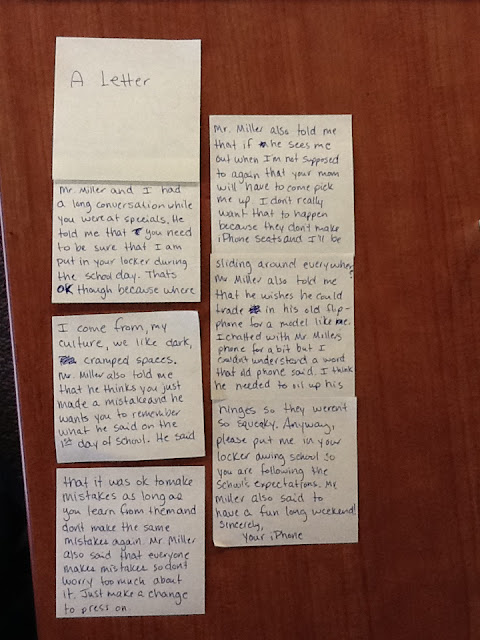 A Letter
Mr. Miller and I had
a long conversation while
you were at specials. He
told me that you need
to be sure that I am
put in your locker during
the school day. Thats
OK though because where
I come from, my
culture, we like dark,
cramped spaces.
Mr. Miller also told me
that he thinks you just
made a mistake and he
wants you to remember
what he said on the
1st day of school. He said
that it was ok to make
mistakes as long as
you learn from them and
dont make the same
mistakes again. Mr. Miller
also said that everyone
makes mistakes so don't
worry too much about
it. Just make a change
to press on.
Mr. Miller also told me
that if he sees me
out when I'm not supposed
to again that your mom
will have to come pick
me up. I don't really
want that to happen
because they don't make
iPhone seats and I'll be
sliding around everywhere!
Mr. Miller also told me
that he wishes he could
trade in his old flip-
phone for a model like me.
I chatted with Mr. Millers
phone for a bit but I
couldn't understand a word
that old phone said. I think
he needed to oil up his
hinges so they weren't
so squeaky. Anyway,
please put me in your
locker during school so
you are following the
school's expectations. Mr.
Miller also said to
have a fun long weekend!
Sincerely,
Your iPhone